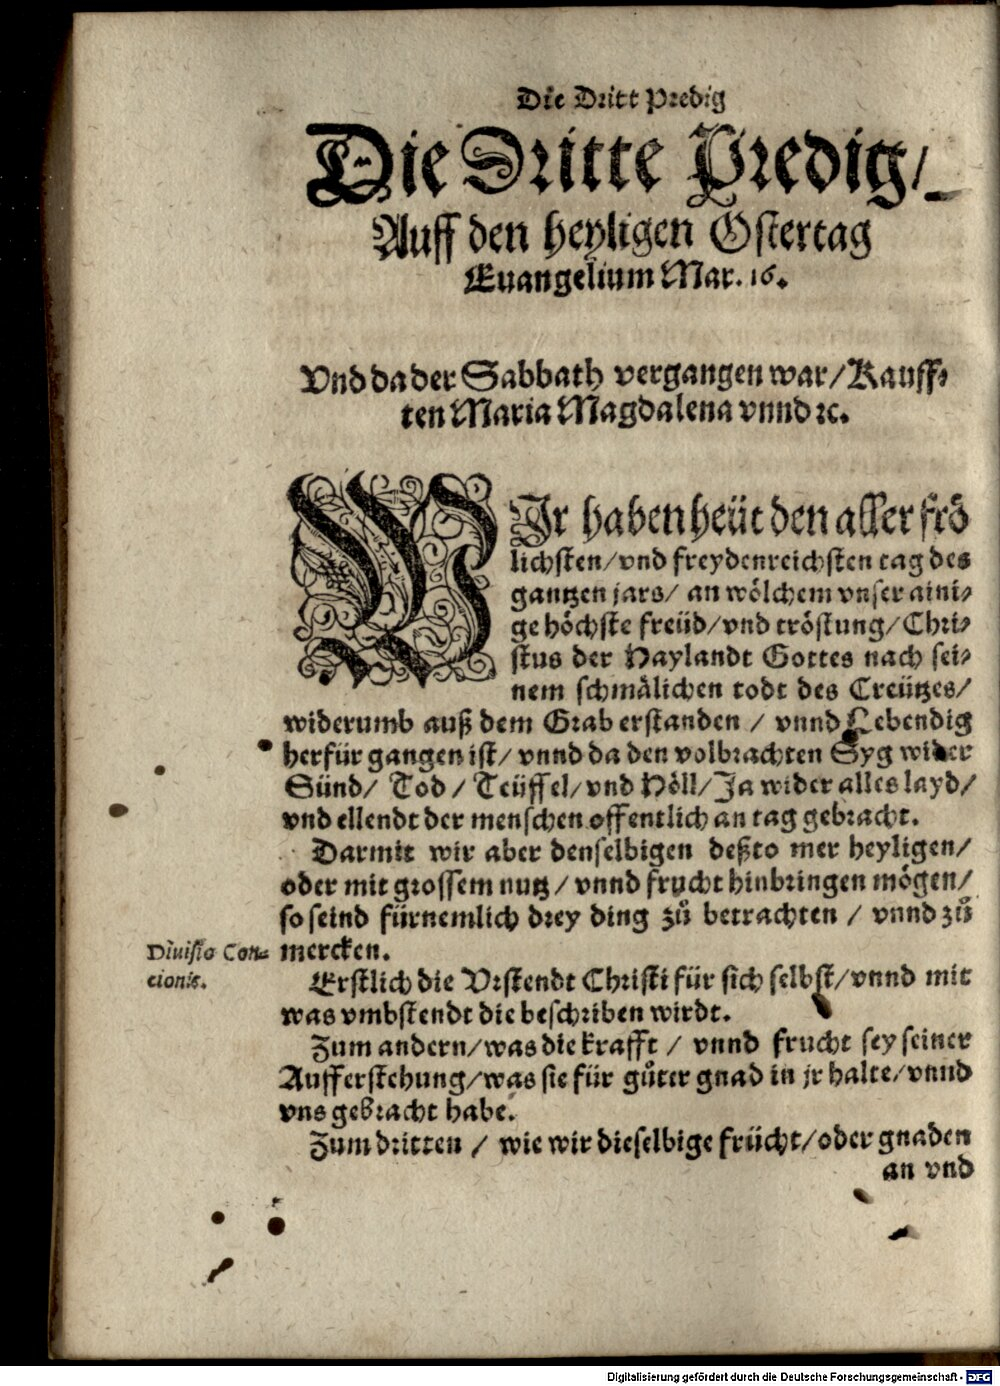 Die Dritt Predig
Die Dritte Predig/
Auff den heyligen Ostertag
Euangelium Mar. 16.
Vnd da der Sabbath vergangen war/Kauff⸗
ten Maria Magdalena vnnd ꝛc.
WIr haben heüt den aller frö
lichsten/vnd freydenreichsten tag des
gantzen jars/ an wölchem vnser aini⸗
ge höchste freüd/vnd tröstung/Chri⸗
stus der Haylandt Gottes nach sei⸗
nem schmälichen todt des Creützes/
widerumb auß dem Grab erstanden / vnnd Lebendig
herfür gangen ist/ vnnd da den volbrachten Syg wider
Sünd/ Tod / Teüffel/vnd Höll/Ja wider alles layd/
vnd ellendt der menschen offentlich an tag gebracht.
Darmit wir aber denselbigen deßto mer heyligen/
oder mit grossem nutz / vnnd frucht hinbringen mögen/
so seind fürnemlich drey ding zů betrachten / vnnd zů
mercken.
Diuisio Con⸗
cionis.
Erstlich die Vrstendt Christi für sich selbst/vnnd mit
was vmbstendt die beschriben wirdt.
Zum andern/was die krafft / vnnd frucht sey seiner
Aufferstehung/was sie für gůter gnad in jr halte/vnnd
vns gebracht habe.
Zum dritten / wie wir dieselbige frücht/oder gnaden
an vnd
Digitalisierung gefördert durch die Deutsche Forschungsgemeinschaft - DFG